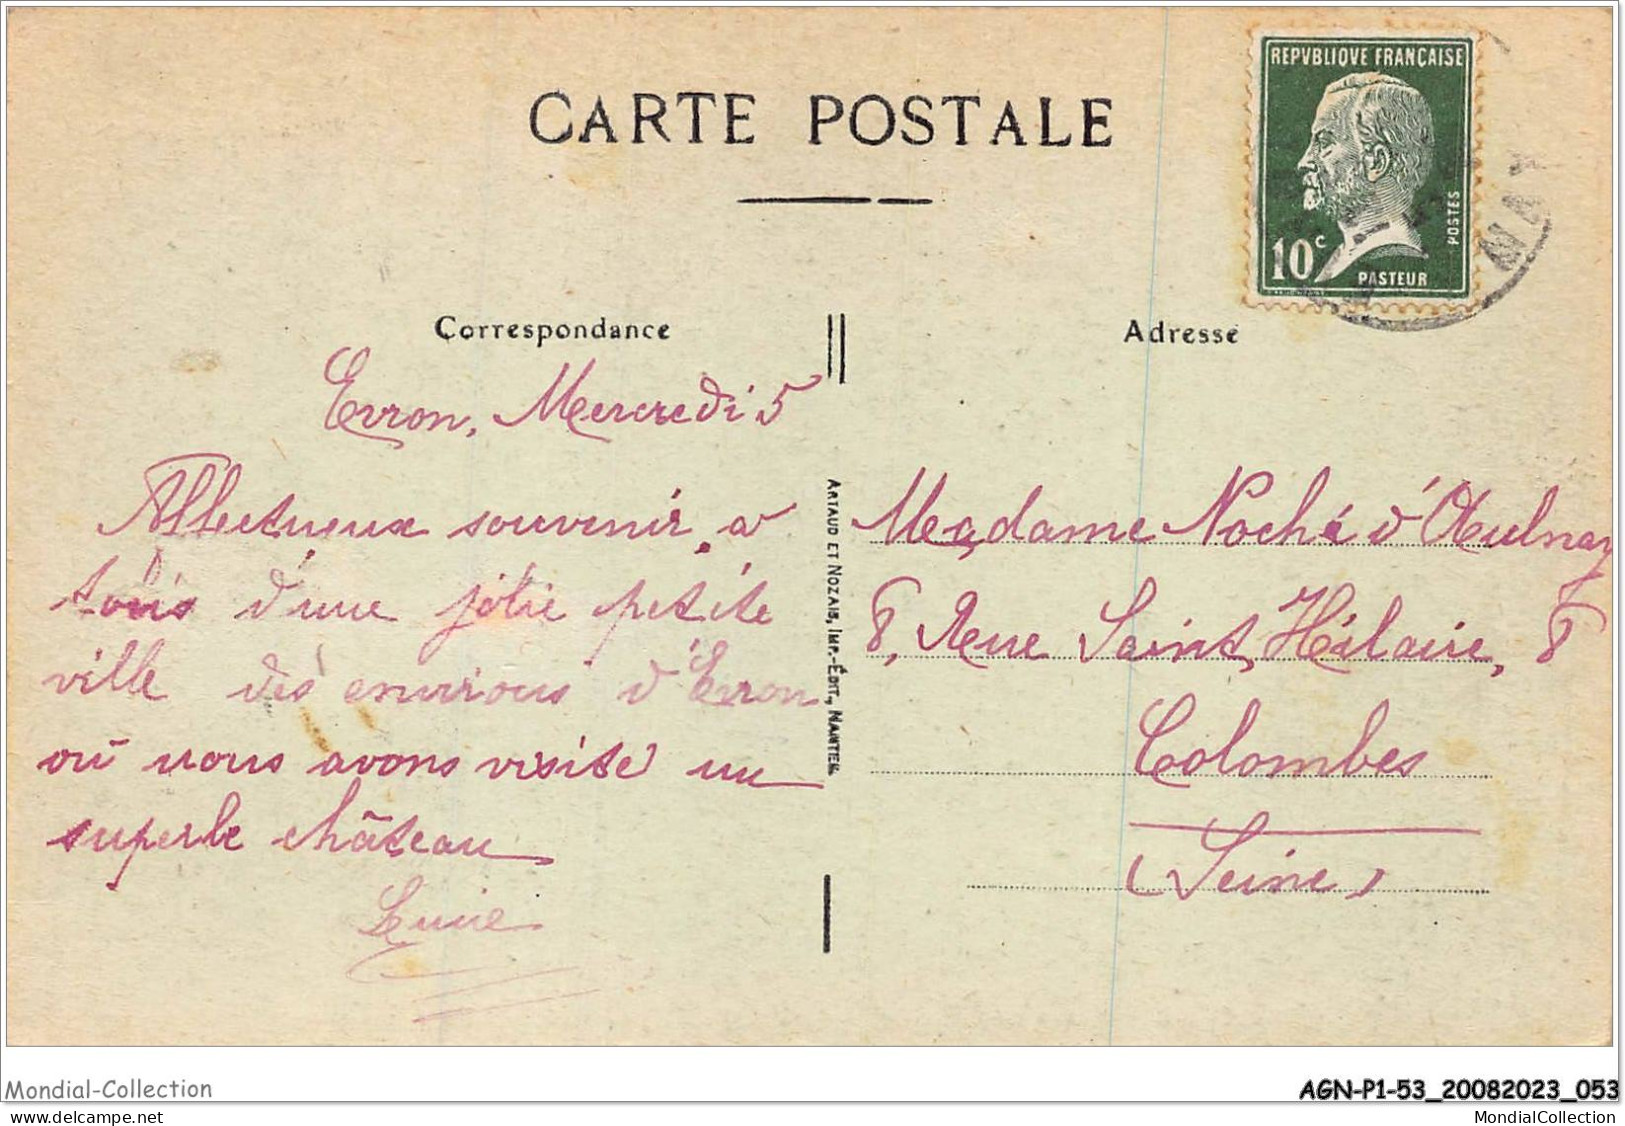 CARTE POSTALE
REPVBLIQVE FRANÇAISE
10c
POSTES
PASTEUR
Correspondance
Evron, Mercredi 5
Affectueux souvenir, à
tous d'une jolie petite
ville des environs d'Evron
où nous avons visité un
superbe château
Lucie
ARTAUD ET NOZAIS, IMP.-ÉDIT., NANTES
Adresse
Madame Noché d'Aulnay
8, Rue Saint Hilaire, 8
Colombes
(Seine)
Mondial-Collection
AGN-P1-53_20082023_053
delcampe.net
MondialCollection